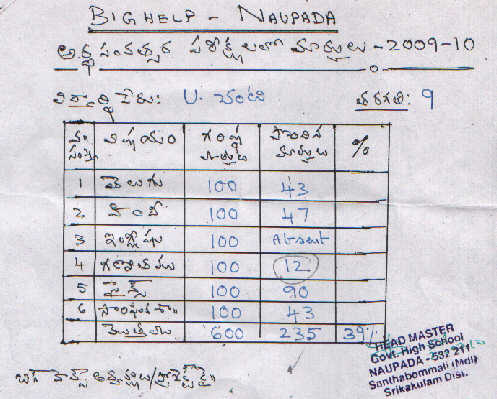 BIGHELP - NAUPADA
అర్ధ సంవత్సర పరీక్షలలో మార్కులు - 2009-10
విద్యార్థి పేరు: U. చంటి తరగతి: 9
వ. సంఖ్య విషయం గరిష్ట మార్కులు పొందిన మార్కులు %
1 తెలుగు 100 43
2 హిందీ 100 47
3 ఇంగ్లీషు 100 Absent
4 గణితం 100 12
5 సైన్స్ 100 90
6 సాంఘిక శా 100 43
మొత్తం 600 235 39%
HEAD MASTER
Govt. High School
NAUPADA - 532 211
Santhabommali (Mdl)
Srikakulam Dist.